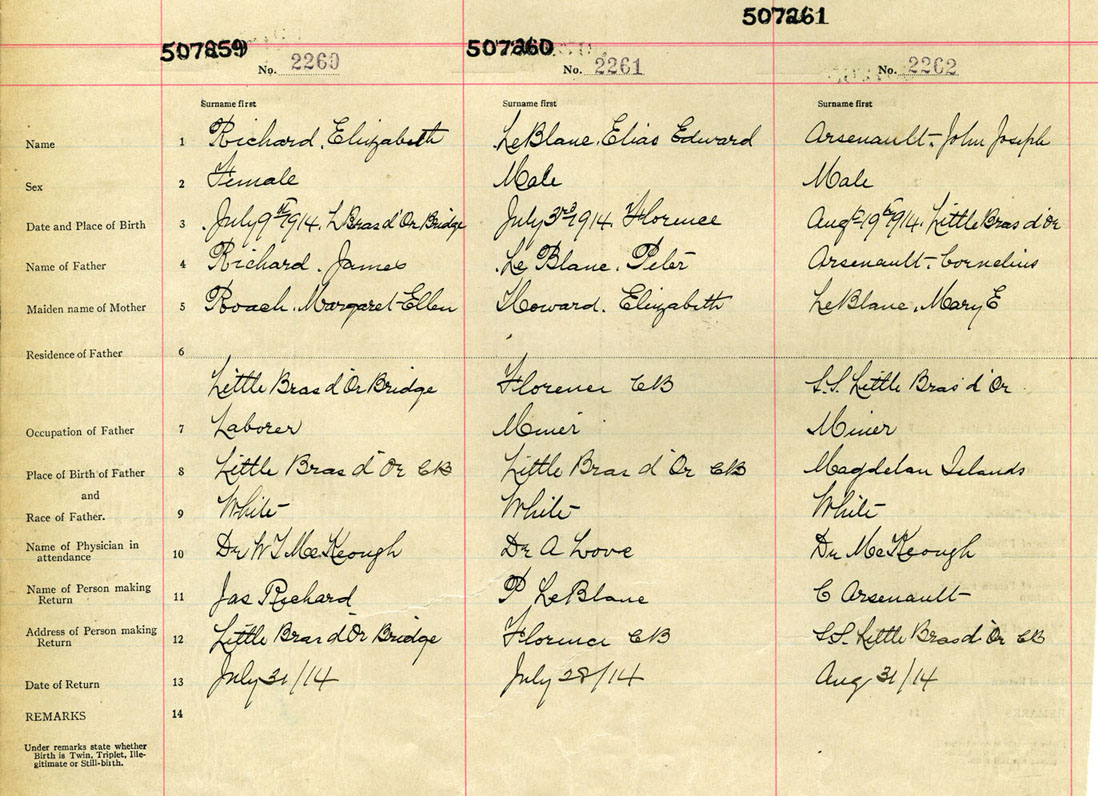 507261
507259 507260
No. 2260 No. 2261 No. 2262
Surname first Surname first Surname first
Name 1 Richard, Elizabeth LeBlanc, Elias Edward Arsenault, John Joseph
Sex 2 Female Male Male
Date and Place of Birth 3 July 9th 1914. L Bras d'Or Bridge July 3rd 1914. Florence Augt 19th 1914. Little Bras d'Or
Name of Father 4 Richard. James Le Blanc. Peter Arsenault. Cornelius
Maiden name of Mother 5 Roach. Margaret Ellen Howard. Elizabeth LeBlanc. Mary E
Residence of Father 6
Little Bras d'Or Bridge Florence CB S.S. Little Bras d'Or
Occupation of Father 7 Laborer Miner Miner
Place of Birth of Father 8 Little Bras d'Or CB Little Bras d'Or CB Magdelan Islands
and
Race of Father. 9 White White White
Name of Physician in
attendance 10 Dr McKeough Dr A Love Dr McKeough
Name of Person making
Return 11 Jas Richard P LeBlanc C Arsenault
Address of Person making
Return 12 Little Bras d'Or Bridge Florence CB S.S. Little Bras d'Or CB
Date of Return 13 July 31/14 July 28/14 Aug 31/14
REMARKS 14
Under remarks state whether
Birth is Twin, Triplet, Ille-
gitimate or Still-birth.